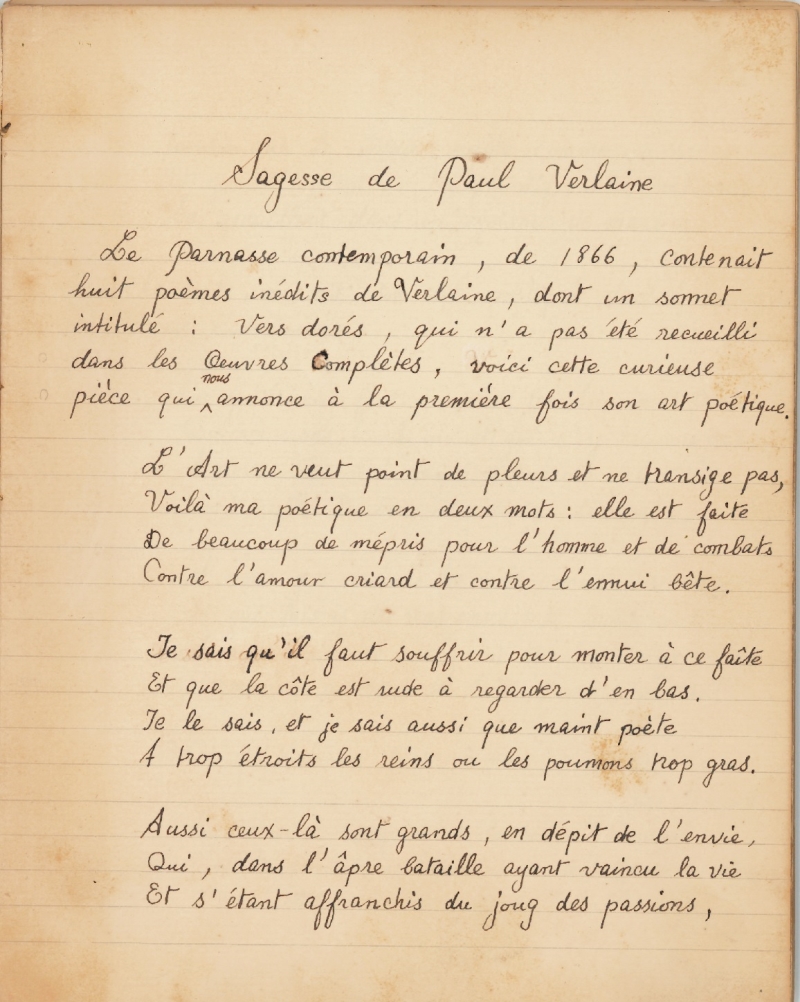 Sagesse de Paul Verlaine
Le Parnasse contemporain, de 1866, contenait
huit poèmes inédits de Verlaine, dont un sonnet
intitulé : Vers dorés, qui n'a pas été recueilli
dans les Oeuvres Complètes, voici cette curieuse
pièce qui nous annonce à la première fois son art poétique.
L'Art ne veut point de pleurs et ne transige pas,
Voilà ma poétique en deux mots : elle est faite
De beaucoup de mépris pour l'homme et de combats
Contre l'amour criard et contre l'ennui bête.
Je sais qu'il faut souffrir pour monter à ce faîte
Et que la côte est rude à regarder d'en bas.
Je le sais, et je sais aussi que maint poète
A trop étroits les reins ou les poumons trop gras.
Aussi ceux-là sont grands, en dépit de l'envie,
Qui, dans l'âpre bataille ayant vaincu la vie
Et s'étant affranchis du joug des passions,